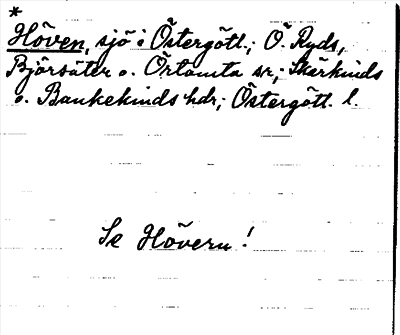 *
Höven, sjö i Östergötl.; Ö. Ryds,
Björsäter o. Örtomta snr, Skärkinds
o. Bankekinds hdr; Östergötl. l.
Se Hövern!